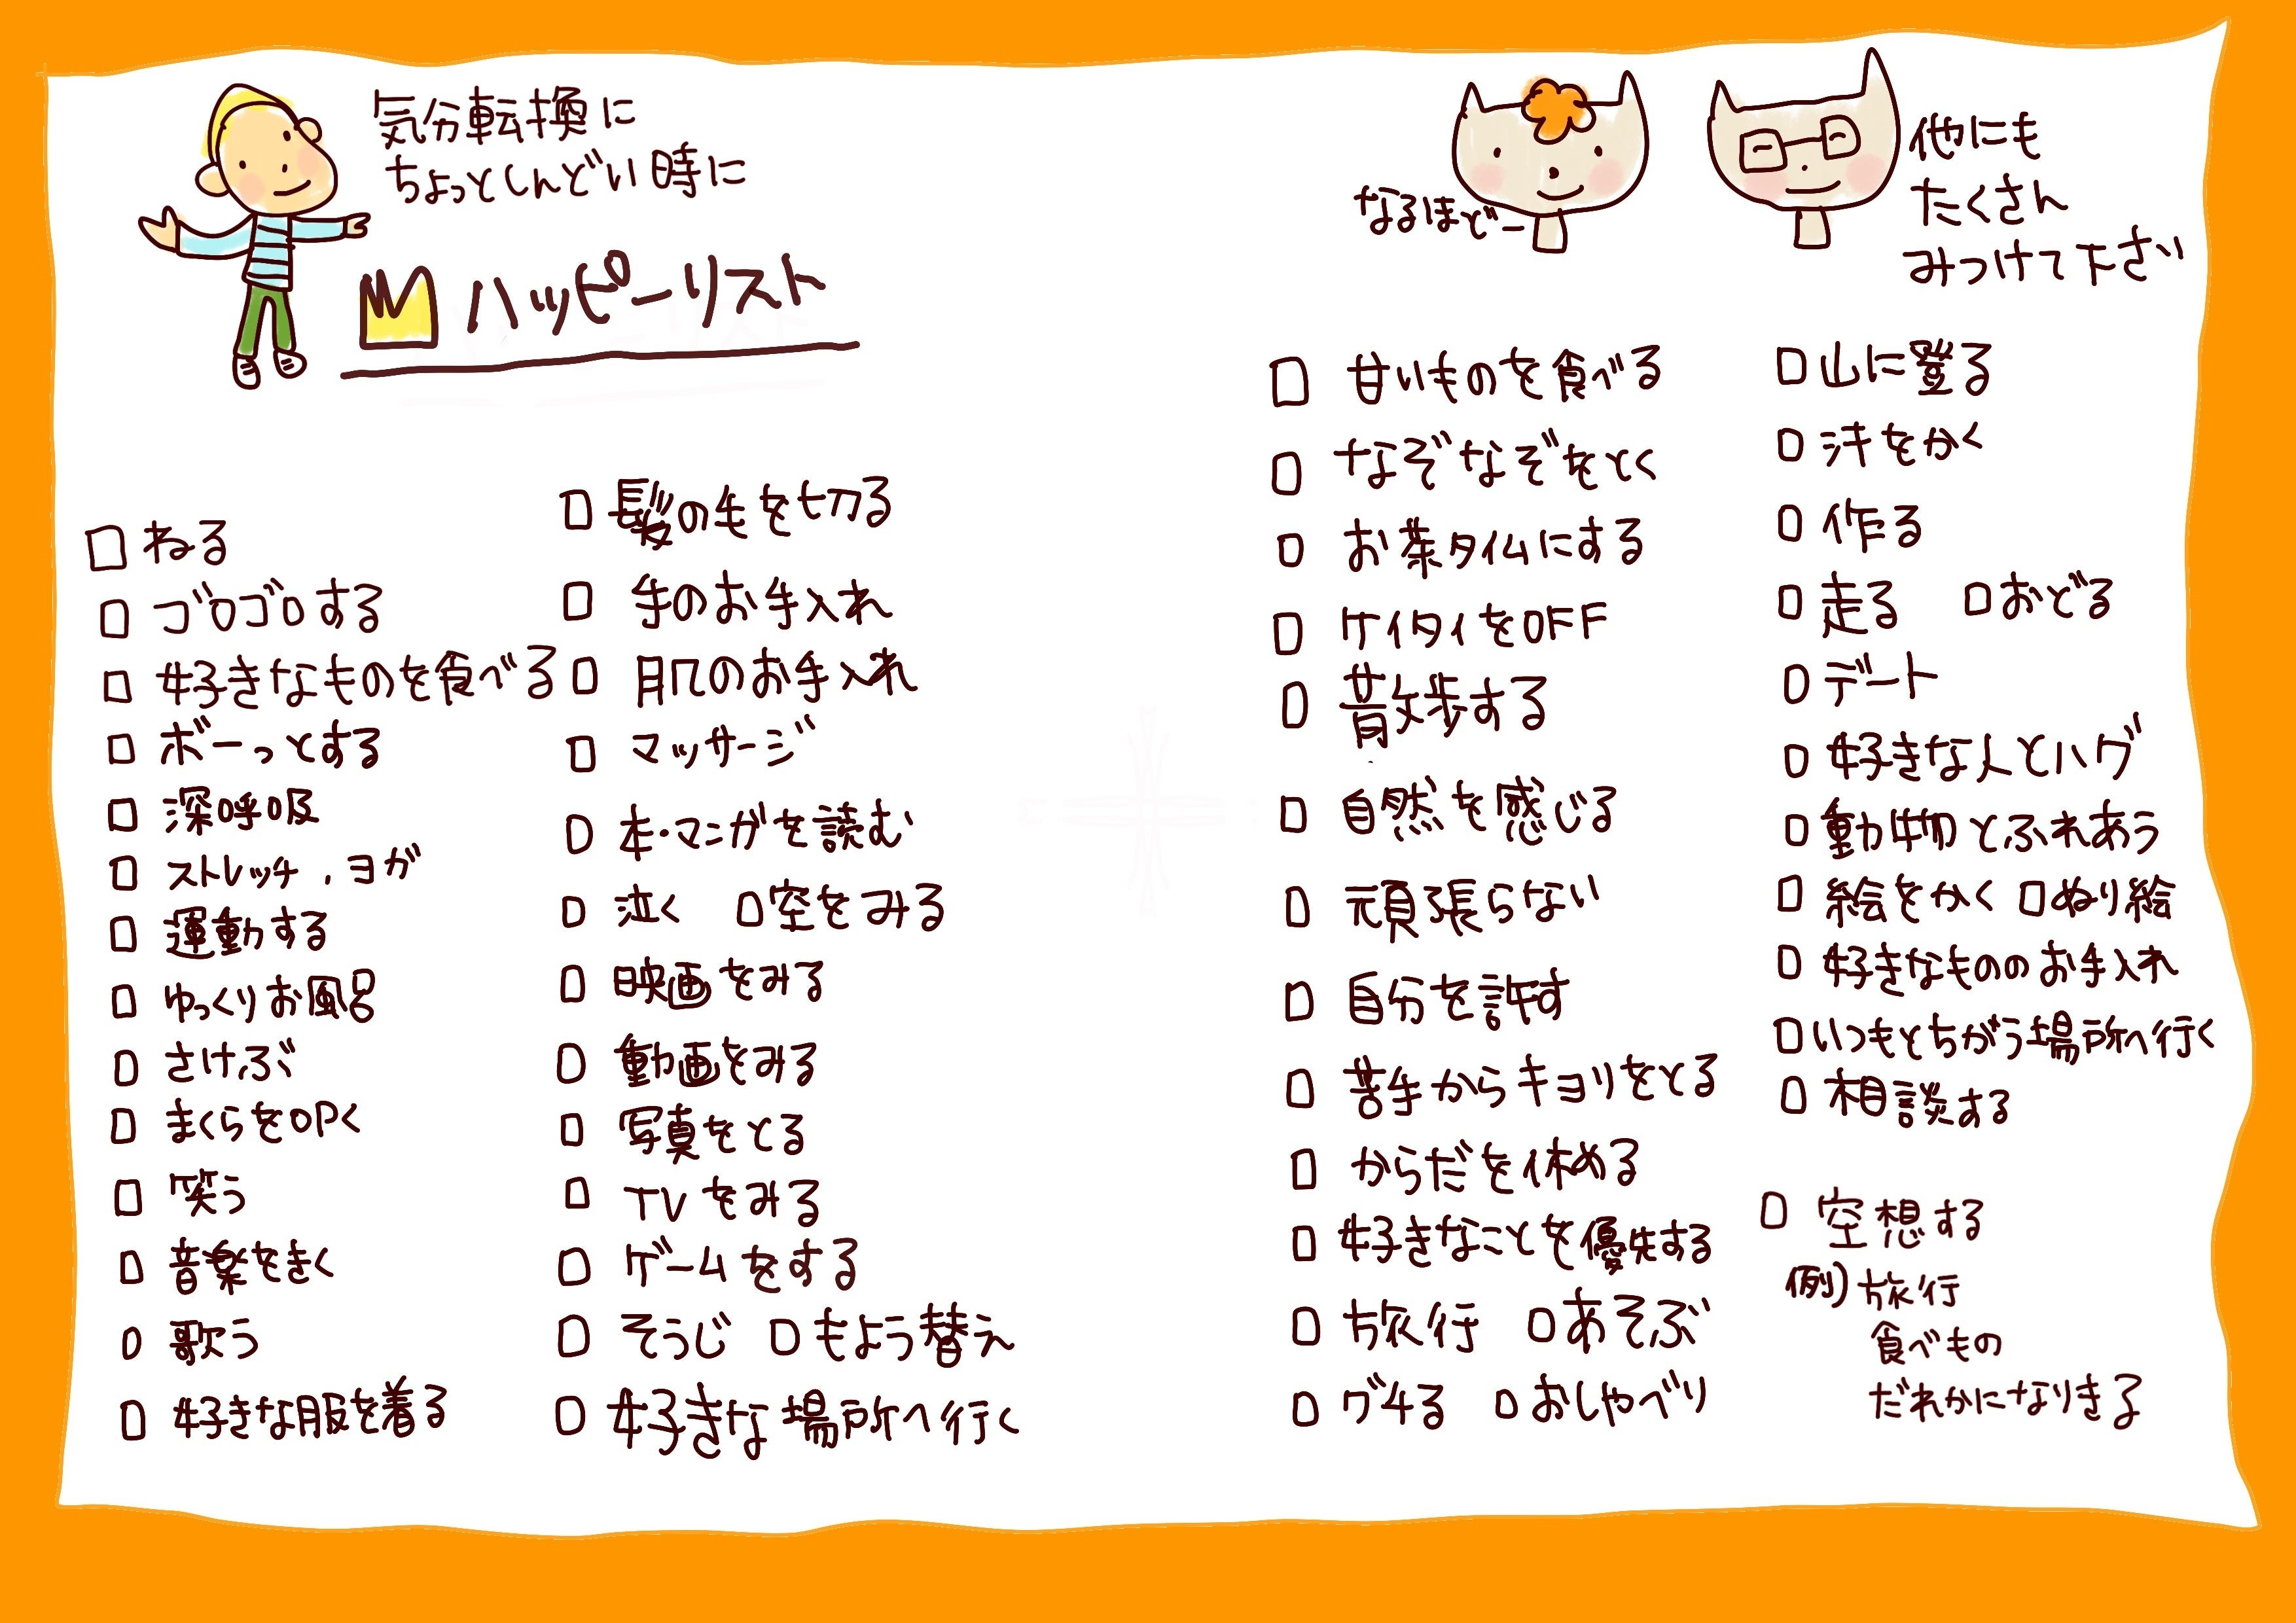 気分転換に
ちょっとしんどい時に
ハッピーリスト
□ ねる
□ ゴロゴロする
□ 好きなものを食べる
□ ボーっとする
□ 深呼吸
□ ストレッチ,ヨガ
□ 運動する
□ ゆっくりお風呂
□ さけぶ
□ まくらを叩く
□ 笑う
□ 音楽をきく
□ 歌う
□ 好きな服を着る
□ 髪の毛を切る
□ 手のお手入れ
□ 肌のお手入れ
□ マッサージ
□ 本・マンガを読む
□ 泣く □ 空をみる
□ 映画をみる
□ 動画をみる
□ 写真をとる
□ TVをみる
□ ゲームをする
□ そうじ □ もよう替え
□ 好きな場所へ行く
なるほどー
他にも
たくさん
みつけて下さい
□ 甘いものを食べる
□ なぞなぞをとく
□ お茶タイムにする
□ ケイタイをOFF
□ 散歩する
□ 自然を感じる
□ 頑張らない
□ 自分を許す
□ 苦手からキョリをとる
□ からだを休める
□ 好きなことを優先する
□ 旅行 □ あそぶ
□ グチる □ おしゃべり
□ 山に登る
□ 汗をかく
□ 作る
□ 走る □ おどる
□ デート
□ 好きな人とハグ
□ 動物とふれあう
□ 絵をかく □ ぬり絵
□ 好きなもののお手入れ
□ いつもとちがう場所へ行く
□ 相談する
□ 空想する
例)旅行
食べもの
だれかになりきる